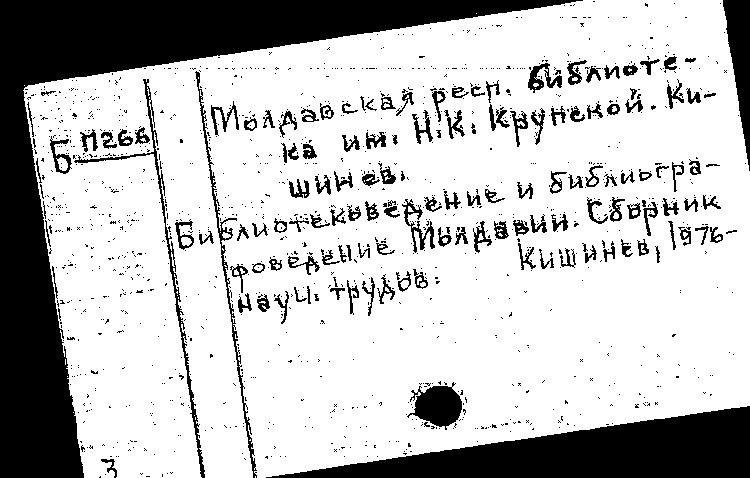 Молдавская респ. библиоте-
Б П266
ка им. Н.К. Крупской. Ки-
шинев.
Библиотековедение и библиогра-
фоведение Молдавии. Сборник
науч. трудов. Кишинев, 1976-
3